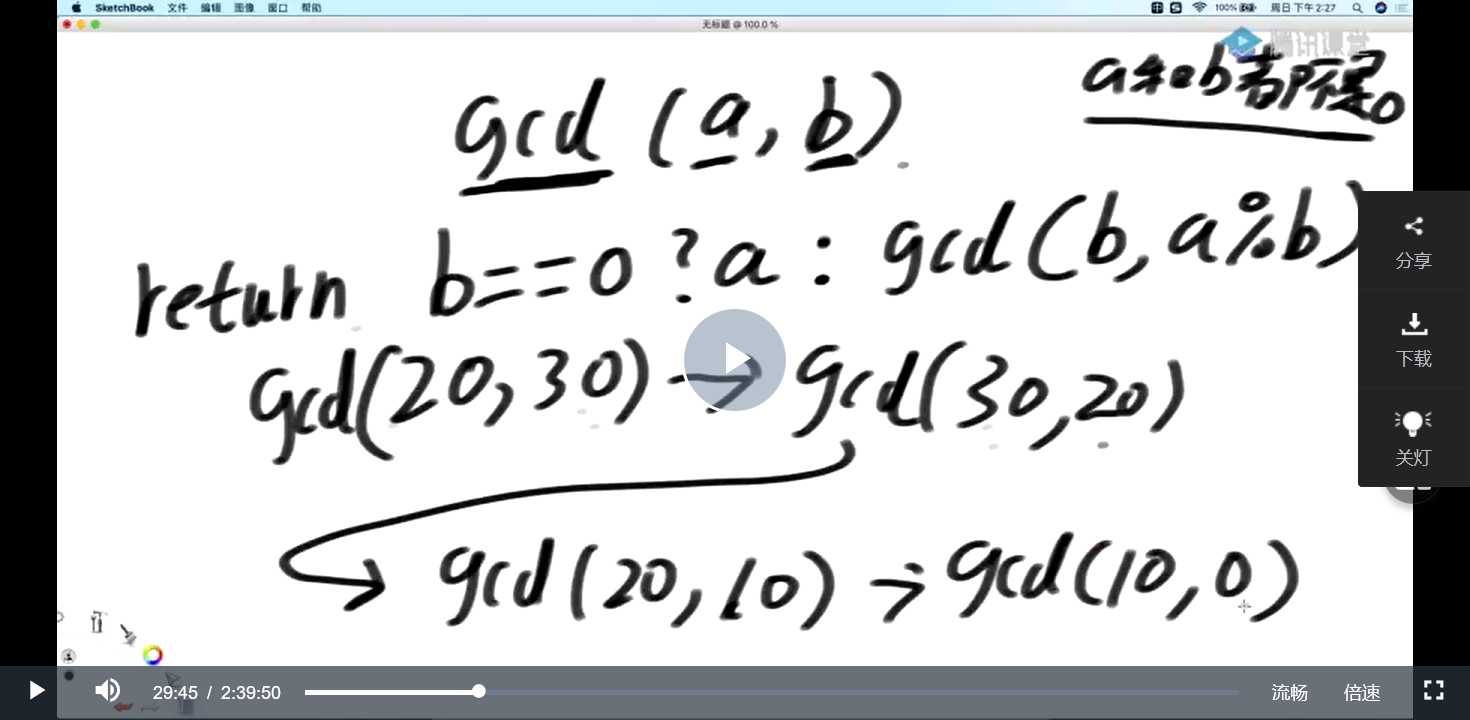 SketchBook 文件 编辑 图像 窗口 帮助 100% 周日下午2:27
无标题 @ 100.0 %
腾讯课堂
a和b都不是0
gcd (a, b)
return b==0 ? a : gcd(b, a%b)
gcd(20, 30) → gcd(30, 20)
→ gcd(20, 10) → gcd(10, 0)
分享
下载
关灯
29:45 / 2:39:50 流畅 倍速